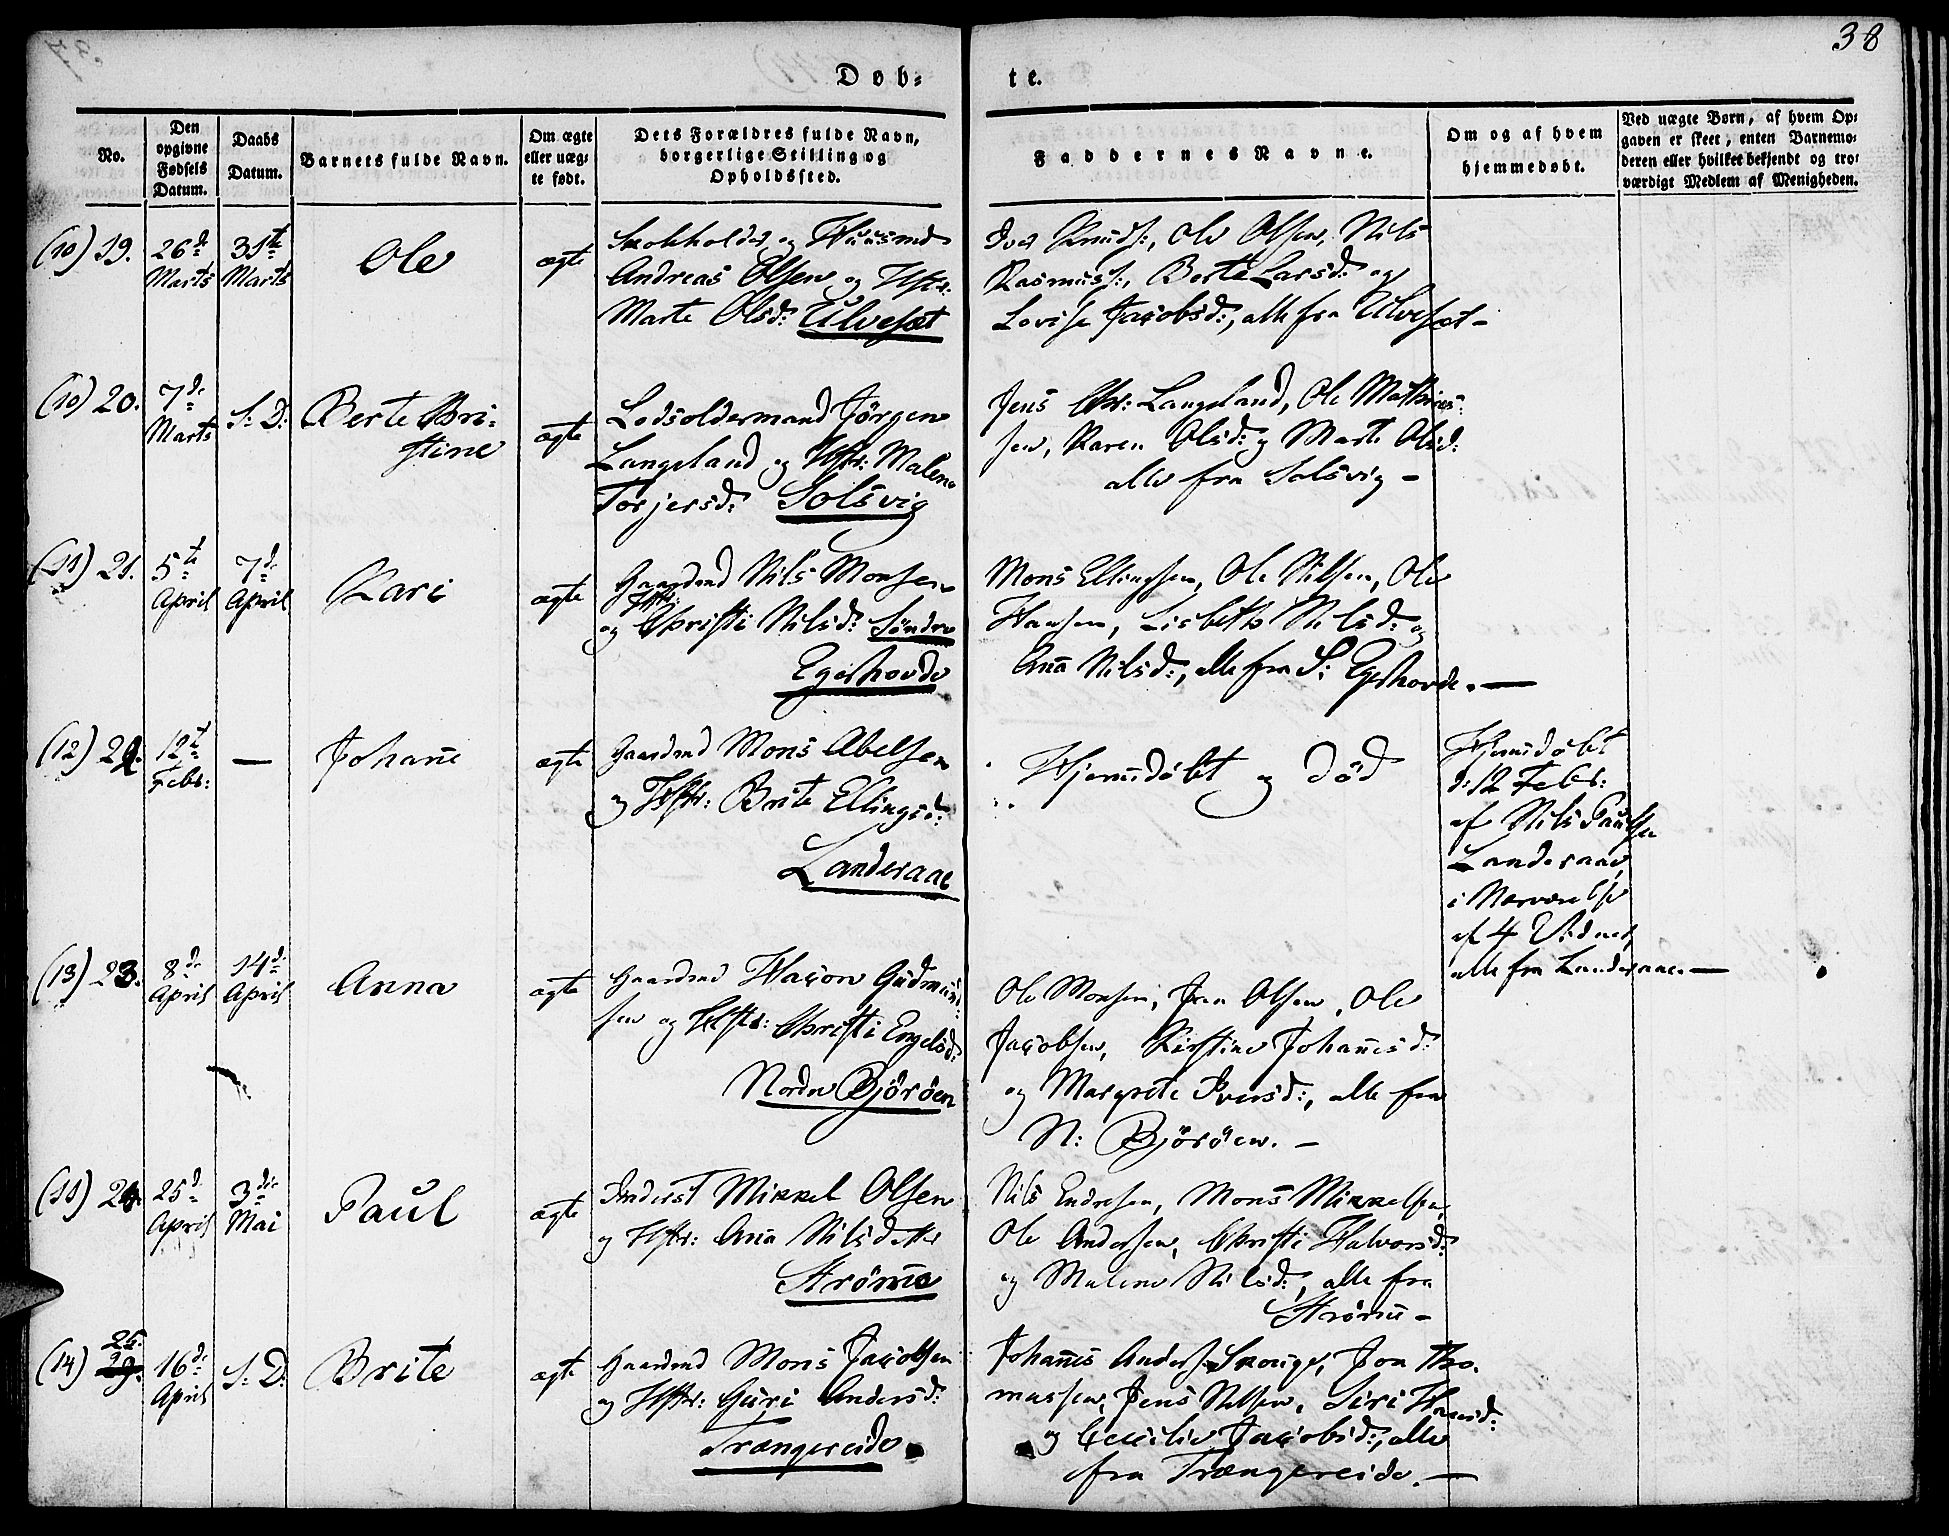 38
Døb-
te.
No.
Den opgivne Fødsels Datum.
Daabs Datum.
Barnets fulde Navn.
Om ægte eller uægte født.
Dets Forældres fulde Navn, borgerlige Stilling og Opholdssted.
Faddernes Navne.
Om og af hvem hjemmedøbt.
Ved uægte Børn, af hvem Opgaven er skeet, enten Barnemoderen eller hvilket bekjendt og troværdigt Medlem af Menigheden.
(10) 19.
26d Marts
31te Marts
Ole
ægte
og Huusmd
Andreas Olsen og Hstr:
Marte Olsd: Ulveset
Iver Knuds:, Ole Olsen, Nils
Rasmuss:, Berte Larsd: og
Lovise Jacobsd:, alle fra Ulveset –
(10) 20.
7de Marts
S: D:
Berte Chri-
stine
ægte
Lodsoldermand Jørgen
Langeland og Hstr: Malene
Torjersd: Solsvig
Jens Chr: Langeland, Ole Mathies-
sen, Karen Olsd: og Marte Olsd:
alle fra Solsvig –
(11) 21.
5te April
7de April
Kari
ægte
Gaardmd Nils Monsen
og Hstr: Christi Nilsd: Søndre
Egeshovde
Mons Ellingsen, Ole Nilsen, Ole
Hansen, Lisbeth Nilsd: og
Ana Nilsd:, alle fra S: Egeshovde. –
(12) 22.
12t Febr:
–
Johane
ægte
Gaardmd Mons Abelsen
og Hstr: Brite Ellingsd:
Landeraae
Hjemdøbt og død
Hjemdøbt
d: 12 Febr:
af Nils Paulsen
Landeraae,
i Nærværelse
af 4 Vidner,
alle fra Landeraae. –
(13) 23.
8de April
14de April
Anna
ægte
Gaardmd Hacon Gudmund-
sen og Hstr: Christi Engelsd:
Nordre Bjørøen
Ole Monsen, Jon Olsen, Ole
Jacobsen, Kirstine Johanesd:
og Margrete Iversd:, alle fra
N: Bjørøen. –
(11) 24.
25d April
3die Mai
Paul
ægte
Inderst Mikkel Olsen
og Hstr: Ana Nilsdatter
Strøme
Nils Endresen, Mons Mikkelsen,
Ole Andersen, Christi Halvorsd:
og Malene Nilsd:, alle fra
Strøme –
(14) 25.
16de April
S: D:
Brite
ægte
Gaardmd Mons Jacobsen
og Hstr: Guri Andersd:
Trængereide
Johanes Anders: Skouge, Jon Tho-
massen, Jens Nilsen, Siri Hansd:
og Cecilie Jacobsd:, alle
fra Trængereide. –